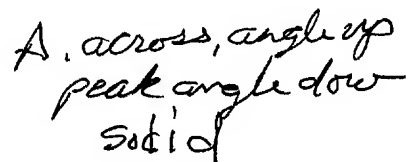 A. across, angle up
peak angle dow
solid